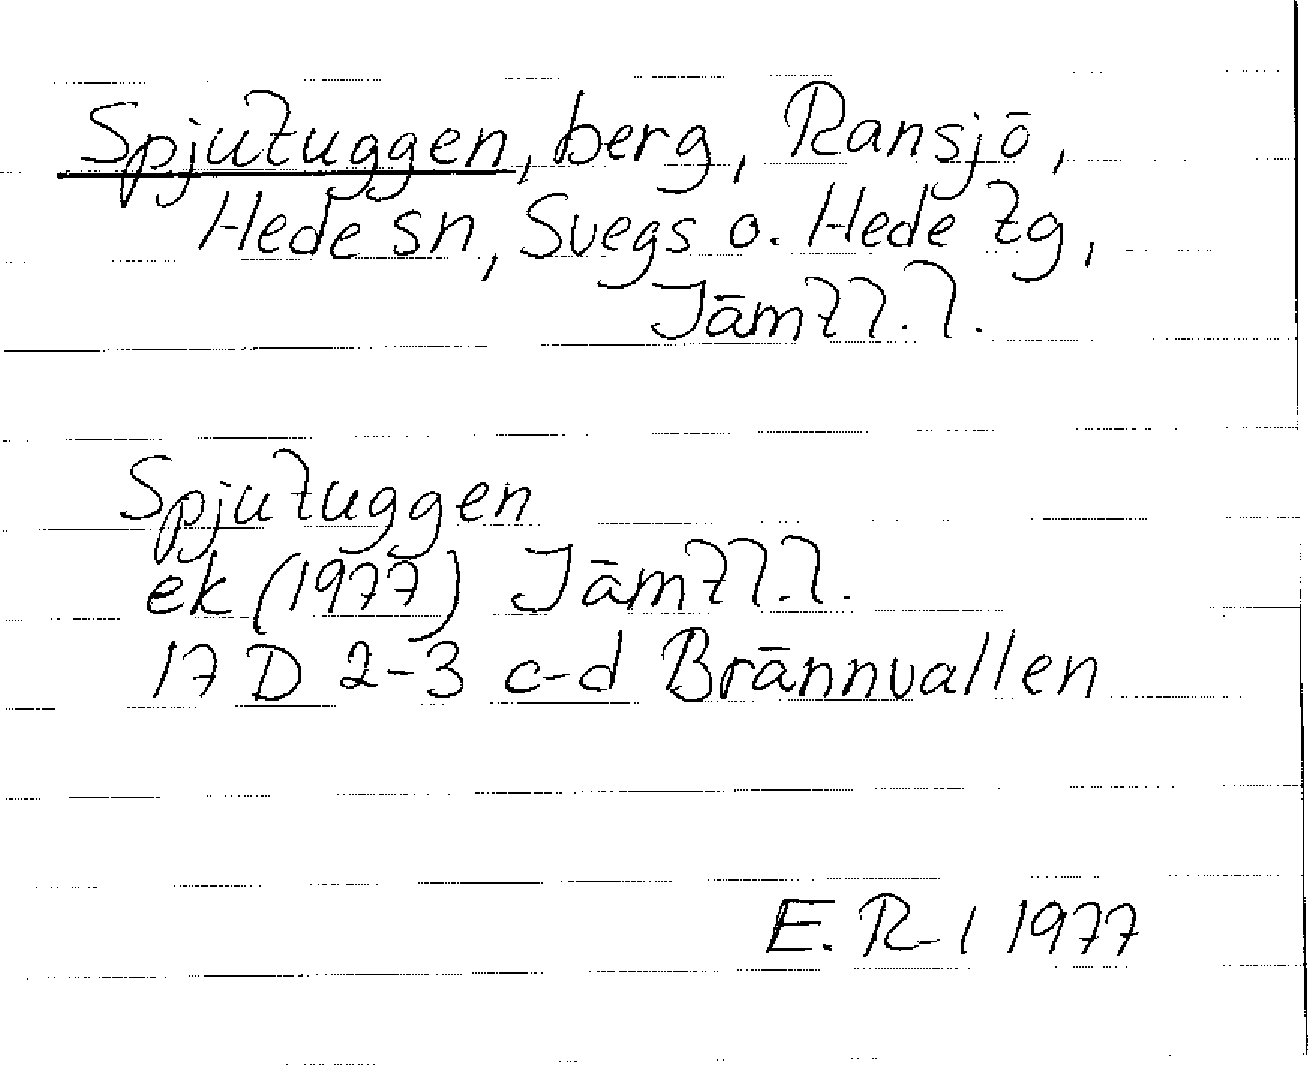 Spjutuggen, berg, Ransjö,
Hede sn, Svegs o. Hede tg,
Jämtl. l.
Spjutuggen
ek (1977) Jämtl. l.
17 D 2-3 c-d Brännvallen
E. R-l 1977